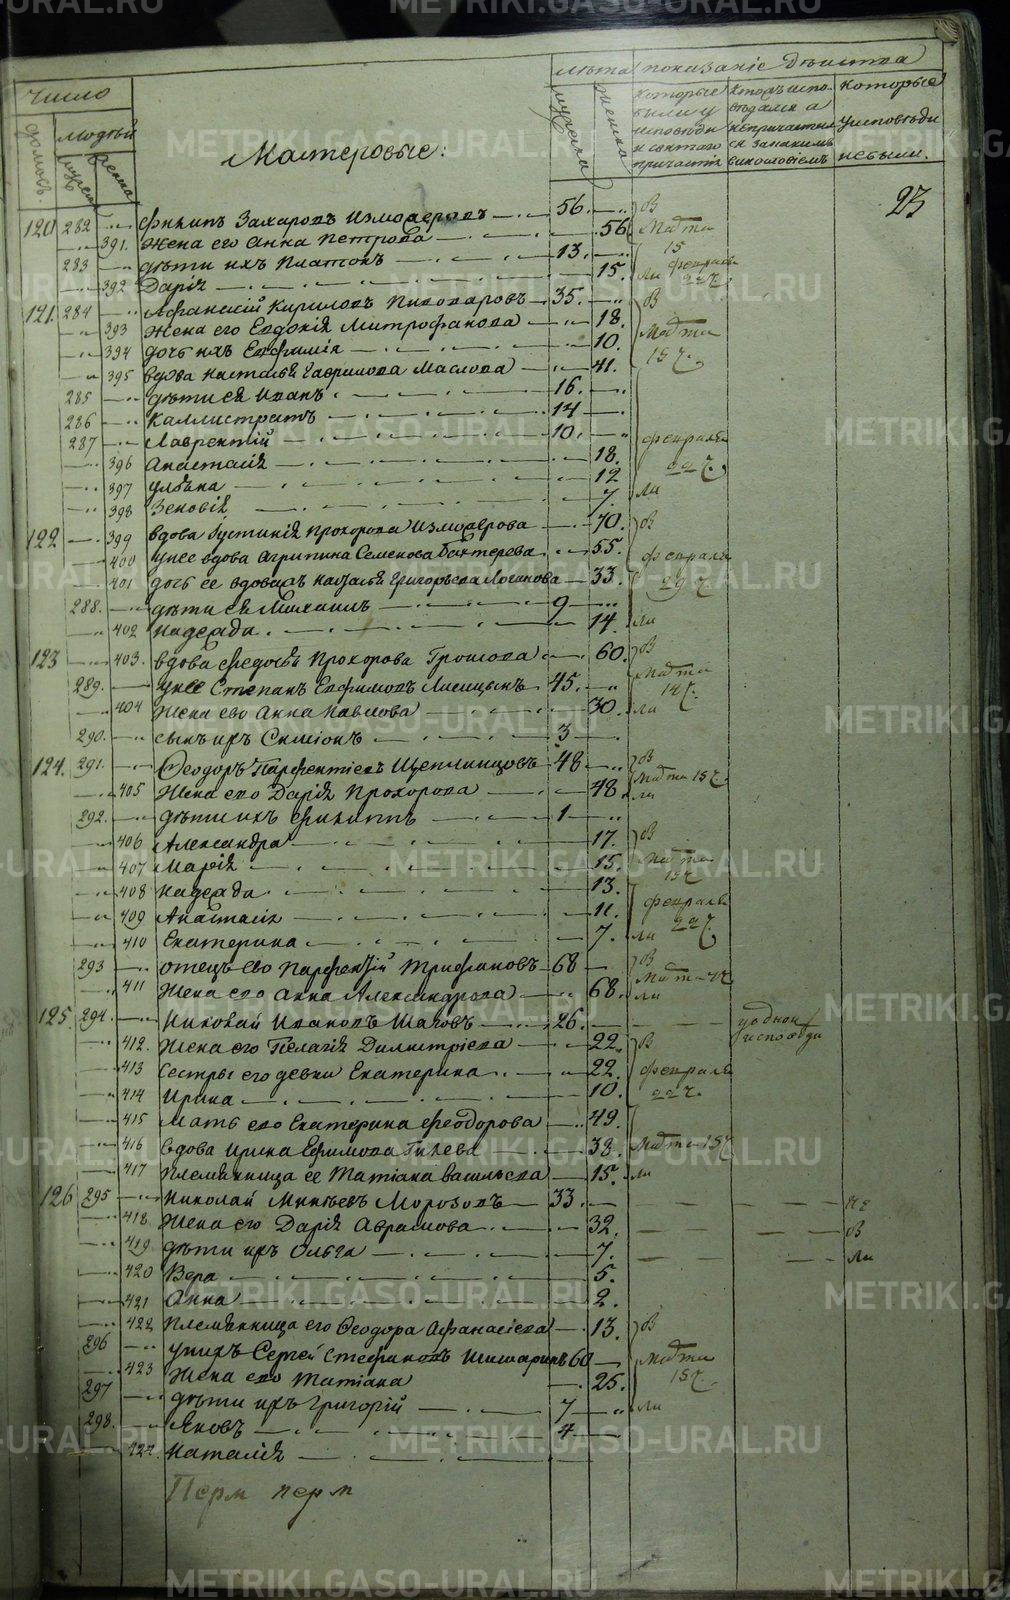 Число
домовъ
людей
мужеска
женска
Мастеровые:
лѣта
мужеска
женска
показаніе дѣйства
Которые были у исповѣди и святаго причастія
Которые исповѣдался а непричастился за какимъ винословіемъ
которые уисповѣди небыли.
23
120 282 Филипъ Захаровъ Измодеровъ 56
391. жена его Анна Петрова 56
283 дѣти ихъ Платонъ 13.
392 Дарія 15.
121. 284 Афанасій Кириловъ Пивоваровъ 35.
393 жена его Евдокія Митрофанова 18.
394 дочь ихъ Евфимія 10.
395 вдова Наталья Гаврилова Маслова 41.
285 дѣти ея Иванъ 16
286 Каллистратъ 14
287 Лаврентій 10.
396 Анастасія 18.
397 Ульяна 12
398 Зеновія 7.
122 399 вдова Устинія Прохорова Измодерова 70.
400 унее вдова Агрипина Семенова Бахтерева 55.
401 дочь ее вдова Наталья Григорьева Логинова 33.
288. дѣти ея Михаилъ 9
402 Надежда 14.
123 403. вдова Федосья Прохорова Громова 60.
289. унее Степанъ Евфимовъ Лисицынъ 45.
404 жена его Анна Павлова 30.
290. сынъ ихъ Симіонъ 3
124. 291. Феодоръ Парфентіевъ Щеплинцовъ 48
405 Жена его Дарія Прохорова 48.
292. дѣти ихъ Филипъ 1
406 Александра 17.
407 Марія 15.
408 Надежда 13.
409 Анастасія 11.
410 Екатерина 7.
293 отецъ его Парфентій Трифановъ 68
411 Жена его Анна Александрова 68.
125. 294. Николай Ивановъ Шаговъ 26.
уоднои исповѣди
412. Жена его Пелагія Димитріева 22.
413 Сестры его девки Екатерина 22.
414 Ирина 10.
415 мать его Екатерина Феодорова 49.
416 вдова Ирина Ефимова Гилева 38.
417 племянница ее Татіана Васильева 15.
126 295 Николай Минѣевъ Морозовъ 33.
418. Жена его Дарія Аврамова 32.
419. дѣти ихъ Ольга 7.
420 Вера 5.
421 Анна 2.
422 племянница его Феодора Афанасіева 13.
296 унихъ Сергей Стефановъ Шишаринъ 60
423 Жена его Татіана 25.
297 дѣти ихъ Григорій 7
298. Яковъ 4
424. Наталія
Перм перм
В
Марта
15
февраля
22 ч.
ли
METRIKI.GASO-URAL.RU